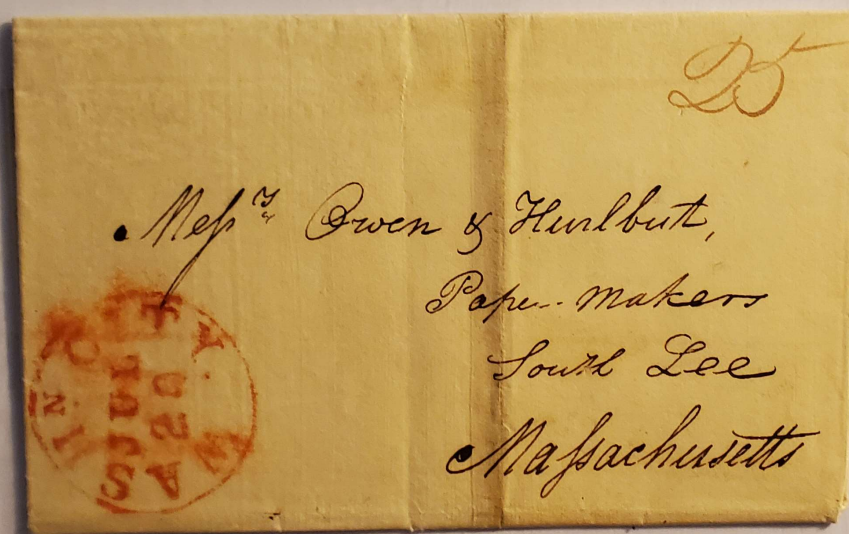 25
Messrs Owen & Hurlbut,
Paper-makers
South Lee
Massachusetts
CITY
JUL